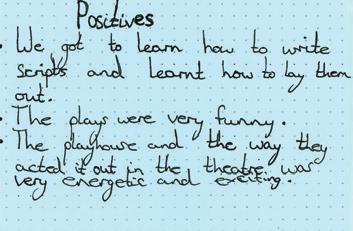 Positives
• We got to learn how to write
scripts and learnt how to lay them
out.
• The plays were very funny.
• The playhouse and the way they
acted it out in the theatre was
very energetic and exciting.